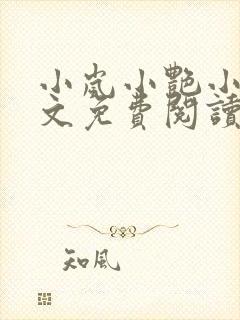 小岚小艷小
文免費閱讀
知風